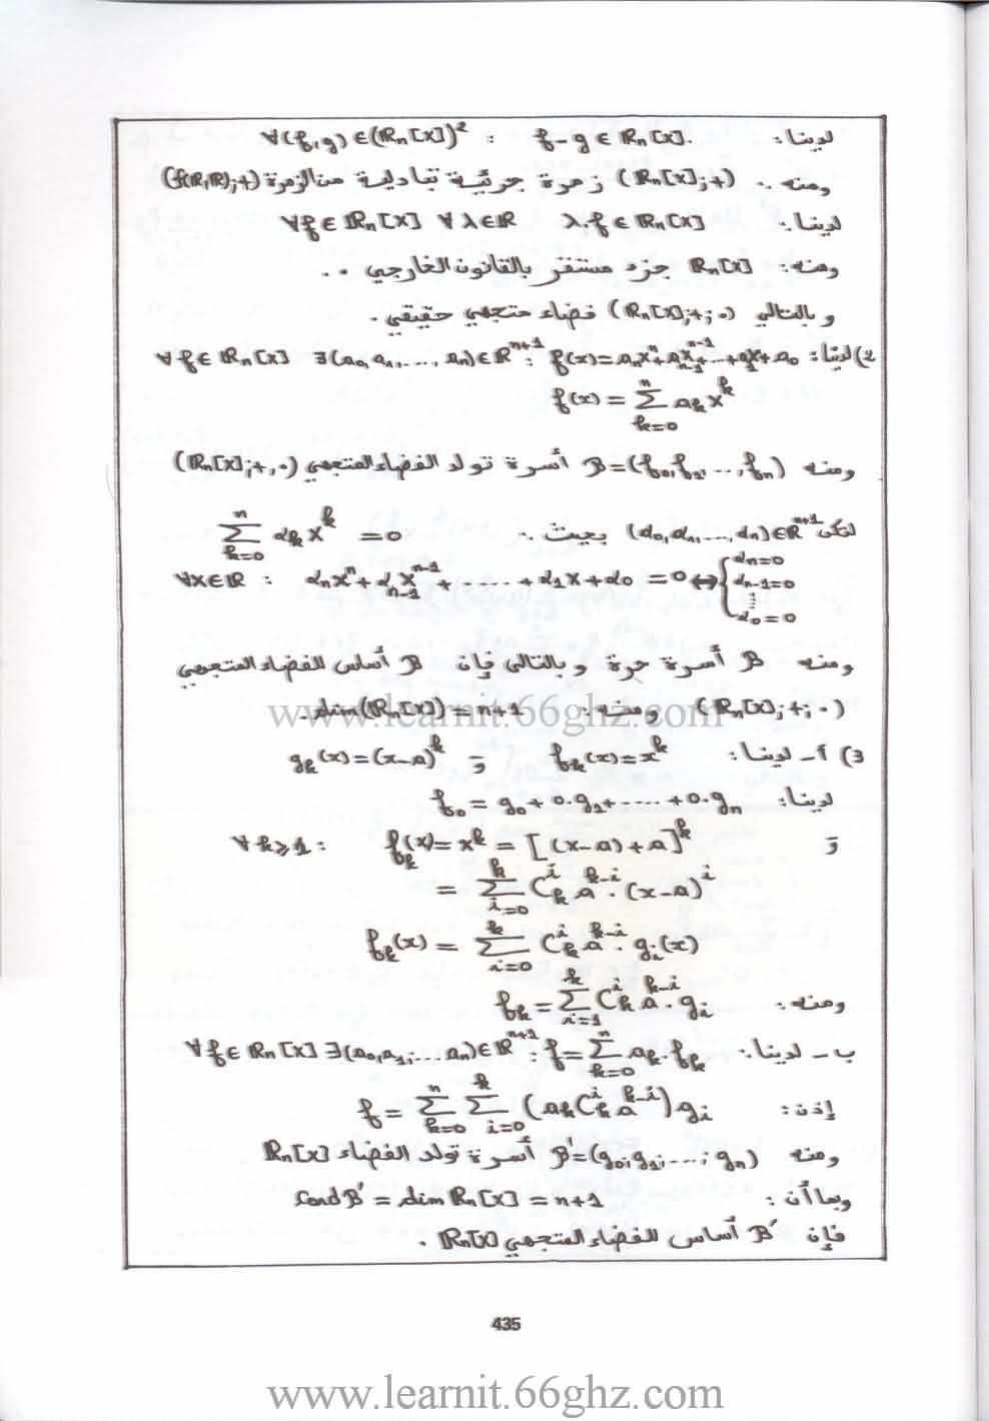 لدينا: ∀(f,g)∈(ℝn[X])² : f-g ∈ ℝn[X].
ومنه .. (ℝn[X];+) زمرة جزئية تبادلية من الزمرة (f(ℝ,ℝ);+)
لدينا: ∀f∈ℝn[X] ∀λ∈ℝ λ.f∈ℝn[X]
ومنه: ℝn[X] جزء مستقر بالقانون الخارجي ..
وبالتالي (ℝn[X];+;.) فضاء متجهي حقيقي.
2) لدينا: ∀f∈ℝn[X] ∃(a₀,a₁,...,an)∈ℝⁿ⁺¹: f(x)=anxⁿ+an-1xⁿ⁻¹+...+a₁x+a₀
f(x) = Σ_{k=0}^{n} akx^k
ومنه B=(f₀,f₁,...,fn) أسرة تولد الفضاء المتجهي (ℝn[X];+,.)
لتكن (α₀,α₁,...,αn)∈ℝⁿ⁺¹ بحيث: Σ_{k=0}^{n} αkX^k = 0
∀X∈ℝ : αnXⁿ+αn-1Xⁿ⁻¹+.....+α₁X+α₀ = 0 ⇔ { αn=0 αn-1=0 ⋮ α₀=0
ومنه B أسرة حرة وبالتالي فإن B أساس للفضاء المتجهي
(ℝn[X];+;.) ومنه: dim(ℝn[X])=n+1.
www.learnit.66ghz.com
3) أ- لدينا: fk(x)=x^k و gk(x)=(x-a)^k
لدينا: f₀ = g₀+0.g₁+.....+0.gn
و ∀k≥1 : fk(x)=x^k = [(x-a)+a]^k
= Σ_{i=0}^{k} C_k^i a^{k-i}.(x-a)^i
fk(x) = Σ_{i=0}^{k} C_k^i a^{k-i}.gi(x)
ومنه: fk = Σ_{i=1}^{k} C_k^i a^{k-i}.gi
ب- لدينا: ∀f∈ℝn[X] ∃(a₀,a₁;...an)∈ℝⁿ⁺¹: f=Σ_{k=0}^{n} ak.fk
إذن: f = Σ_{k=0}^{n} Σ_{i=0}^{k} (akC_k^i a^{k-i})gi
ومنه B'=(g₀;g₁;...;gn) أسرة تولد الفضاء ℝn[X]
وبما أن: Card B' = dim ℝn[X] = n+1
فإن B' أساس للفضاء المتجهي ℝn[X].
435
www.learnit.66ghz.com